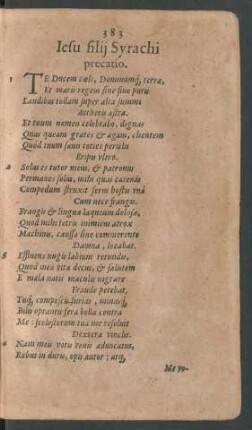 383
Iesu filij Syrachi
precatio.
1 TE Ducem cœli, Dominumq́; terræ,
Et maris regem sine fine puri
Laudibus tollam super alta summi
Aetheris astra.
Et tuum nomen celebrabo, dignas
Quas queam grates & agam, clientem
Quod tuum sano toties periclo
Eripis vltro.
2 Solus es tutor meus, & patronus
Permanes solus, mihi quas catenis
Compedum struxit ferus hostis
Cum nece frangis.
Frangis & linguæ laqueum dolosæ,
Quod mihi tetris inimicus atrox
Machinis, caussa sine
Damna, locabat.
3 Effluens nugis labium retundis,
Quod meæ vitæ decus, & salutem
E mala natis macula nigrare
Fraude petebat,
Tuq́; compescis furias, minasq́;
Bile optantis fera bella contra
Me: scelestorum tua me resoluit
Dextera vinclis.
4 Nam meu votis venis aduocatus,
Rebus in duris, opis autor: atq́;
Me